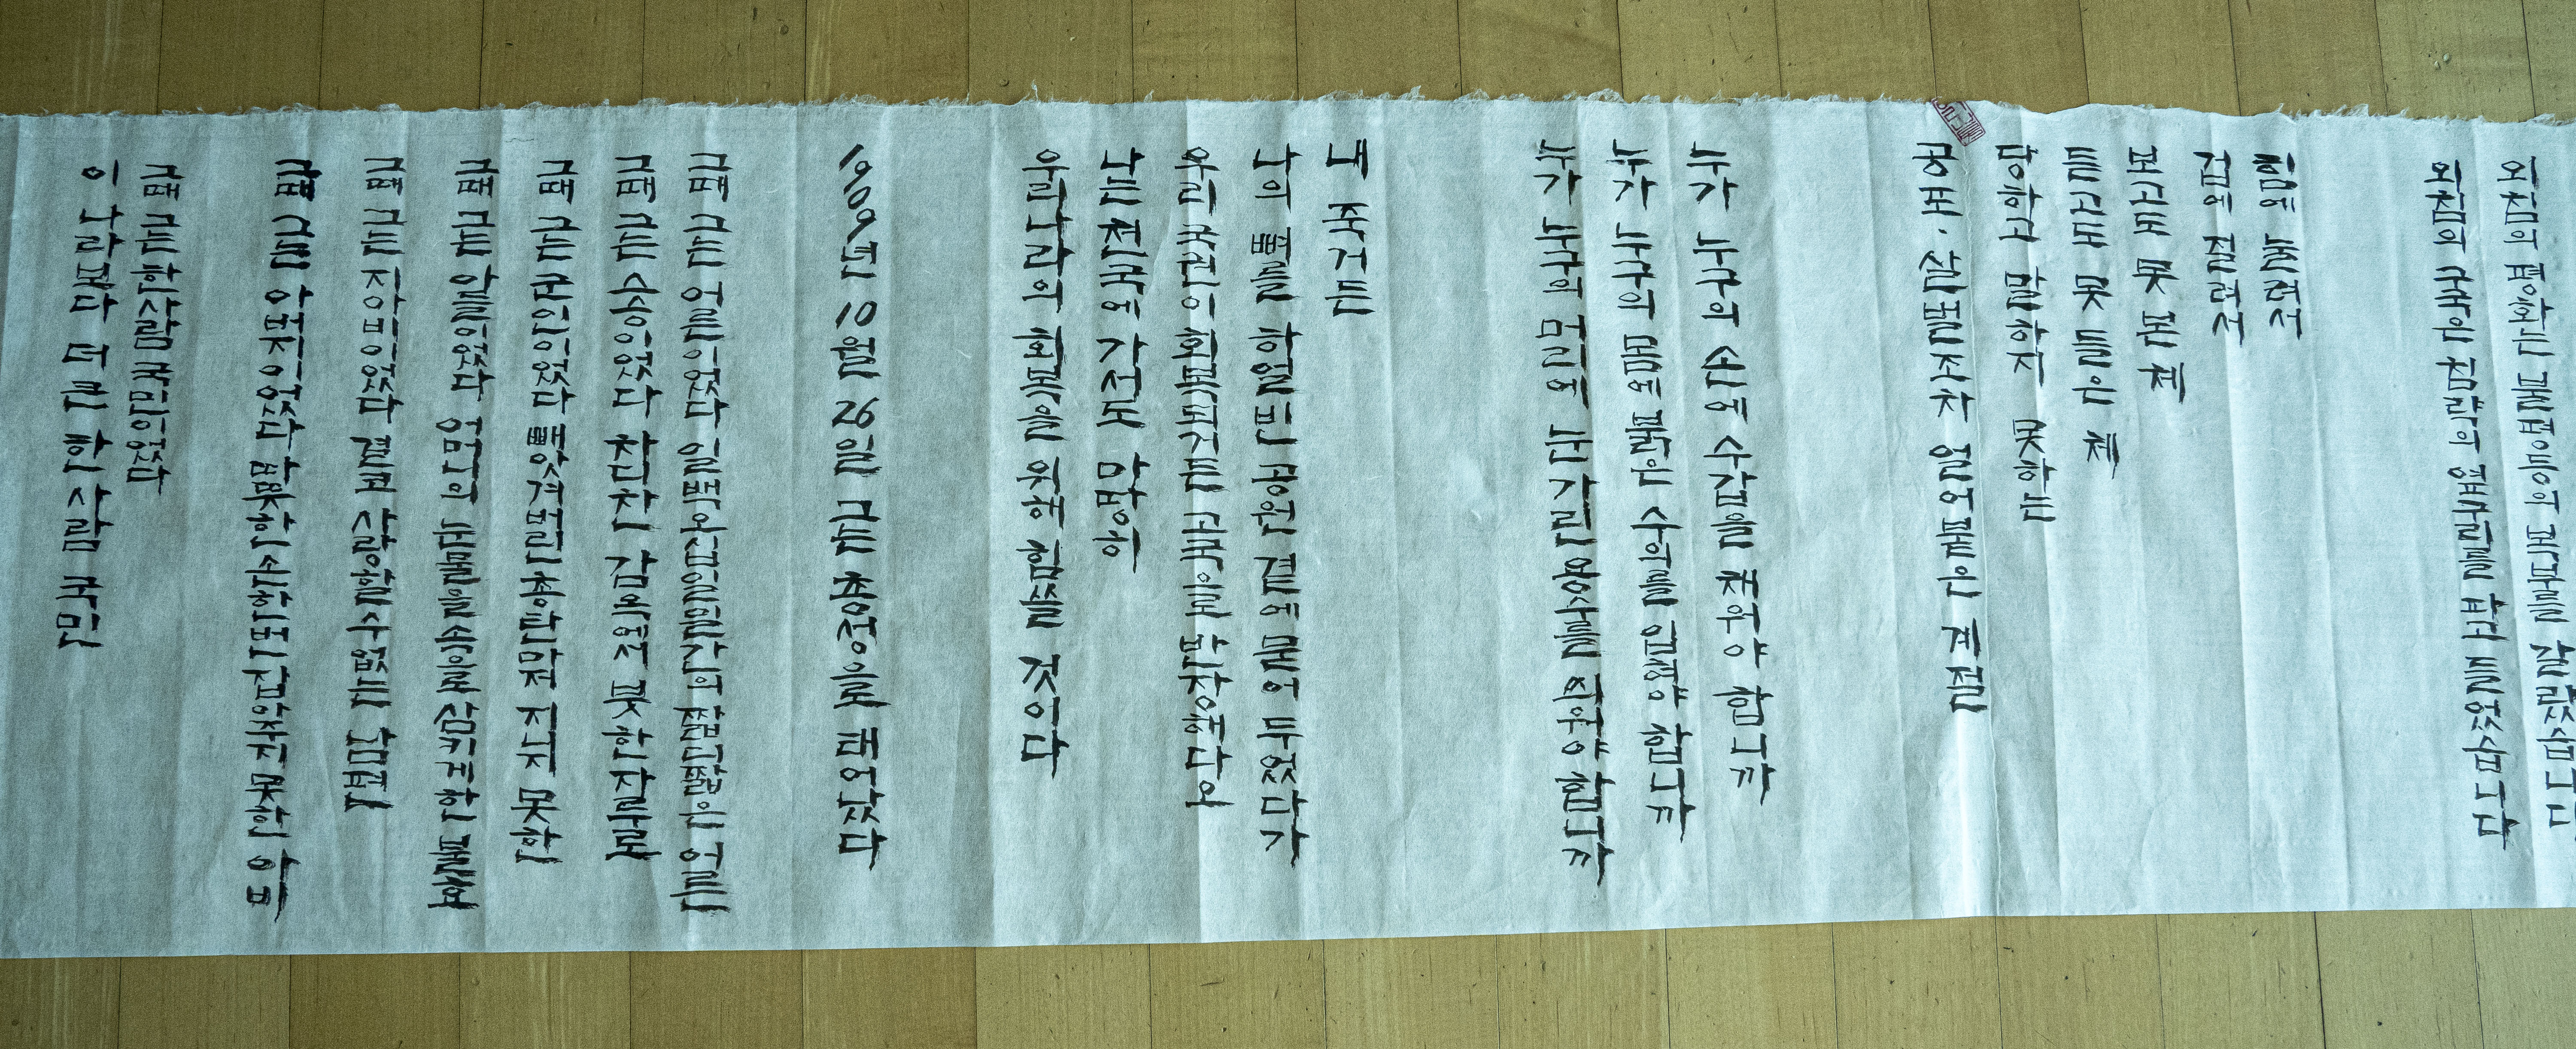 외침의 평화는 불평등의 복부를 갈랐습니다
외침의 구국은 침략의 옆구리를 들었습니다
힘에 눌려서
겁에 질려서
보고도 못 본 체
듣고도 못 들은 체
당하고 말하지 못하는
공포, 얼어붙은 계절
누가 누구의 손에 수갑을 채워야 합니까
누가 누구의 몸에 붉은 수의를 입혀야 합니까
누가 누구의 머리에 눈가린 용수를 씌워야 합니까
내 죽거든
나의 뼈를 하얼빈 공원 곁에 묻어 두었다가
우리 국권이 회복되거든 고국으로 반장해다오
나는 천국에 가서도 마땅히
우리나라의 회복을 위해 힘쓸 것이다
1909년 10월 26일 그는 총성으로 태어났다
그때 그는 어른이었다 일백오십일일간의 짧디짧은 어른
그때 그는 스승이었다 차디찬 감옥에서 붓 한자루로
그때 그는 군인이었다 빼앗겨버린 총탄마저 지니지 못한
그때 그는 아들이었다 어머니의 눈물을 속으로 삼키게한 불효
그때 그는 지아비이었다 결코 사랑할수없는 남편
그때 그는 아버지이었다 따뜻한 손 한번 잡아주지 못한 아비
그때 그는 한사람 국민이었다
이 나라보다 더 큰 한 사람 국민